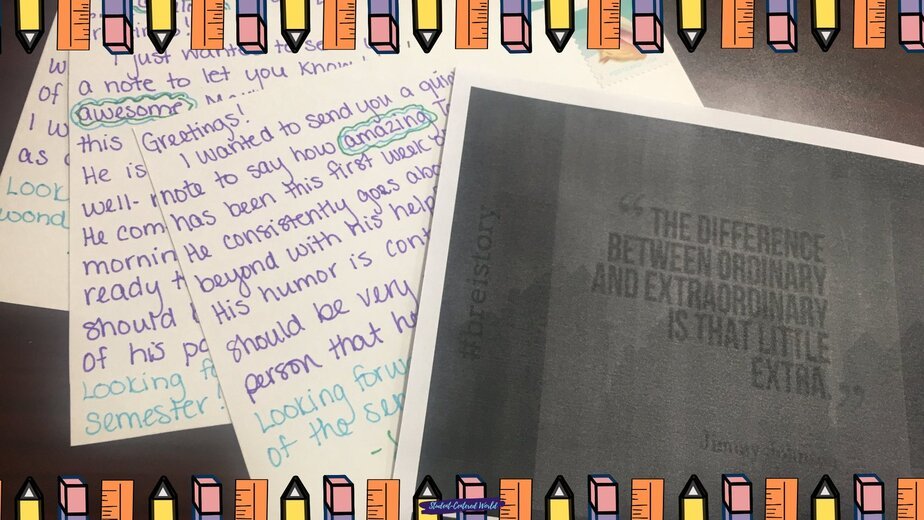 I just wan
a note to let you know
awesome
this
He is
well-
He com
mornin
ready t
should
of his pa
Looking fo
semester!
w
of
I w
as
Look
wond
Greetings!
I wanted to send you a qui
note to say how amazing
has been this first week o
He consistently goes abo
beyond with His help
His humor is con
should be very
person that he
Looking forw
of the se
#breistory
“THE DIFFERENCE
BETWEEN ORDINARY
AND EXTRAORDINARY
IS THAT LITTLE
EXTRA.”
Jimmy Johnson
Student-Centered World